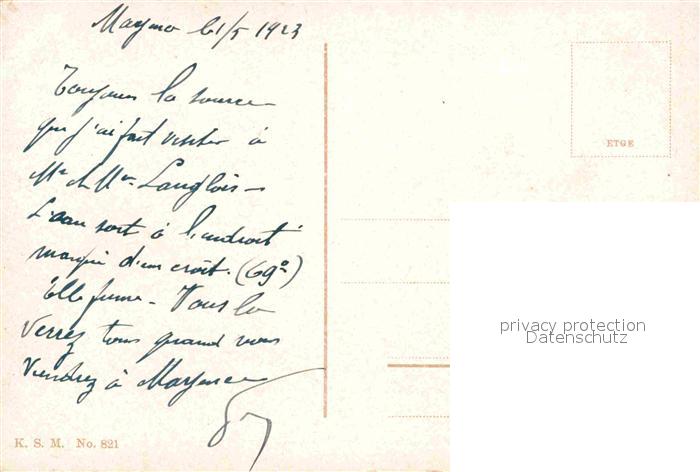 le 1/5 1923
Toujours la source
que j'ai fait visiter à
Mr et Mme Langlois -
L'eau sort à l'endroit
marqué d'un croix. (69°)
Elle fume - Vous la
verrez tous quand vous
viendrez à Mayence
ETGE
privacy protection
Datenschutz
K. S. M. No. 821